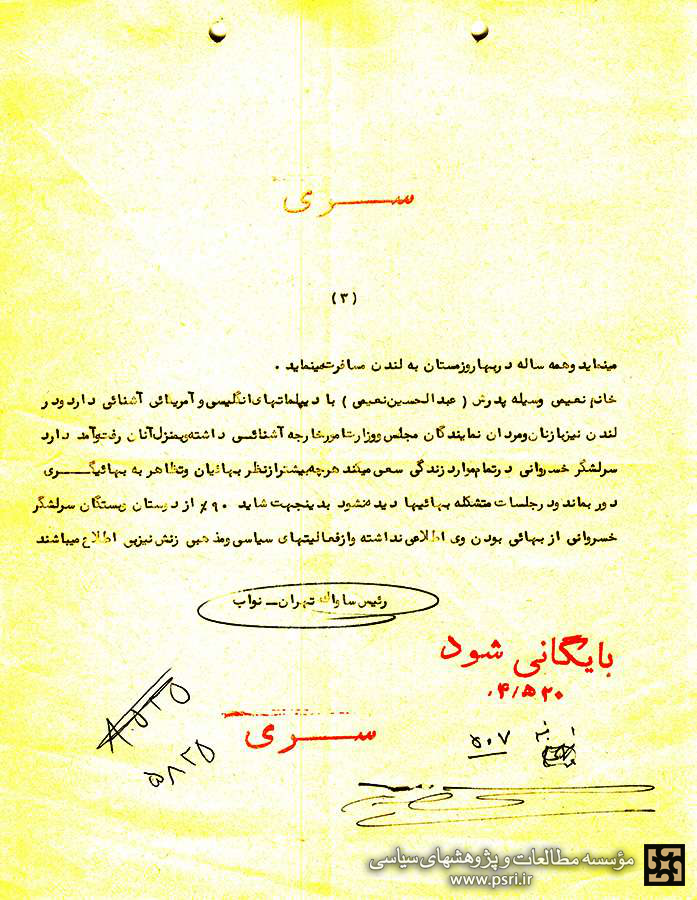 سری
(۳)
مینماید وهمه ساله دربهاروزمستان به لندن مسافرت مینماید .
خانم نعیمی وسیله پدرش ( عبدالحسین نعیمی ) با دیپلماتهای انگلیسی و آمریکائی آشنائی دارد ودر
لندن نیزبازنان ومردان نمایندگان مجلس ووزارت امورخارجه آشنائی داشته وبمنزل آنان رفت وآمد دارد
سرلشگر خسروانی درتمام موارد زندگی سعی میکند هرچه بیشتر ازنظر بهائیان وتظاهر به بهائیگـــری
دور بماند ودرجلسات متشکله بهائیها دیده نشود بدینجهت شاید ۹۰٪ از دوستان وبستگان سرلشگر
خسروانی از بهائی بودن وی اطلاعی نداشته وازفعالیتهای سیاسی ومذهبی زنش نیزبی اطلاع میباشند
رئیس ساواک تهران ـ نواب
بایگانی شود
۵۲۰/۴۰
سری
۵۰۷
۵۸۲۵
مؤسسه مطالعات و پژوهشهای سیاسی
www.psri.ir